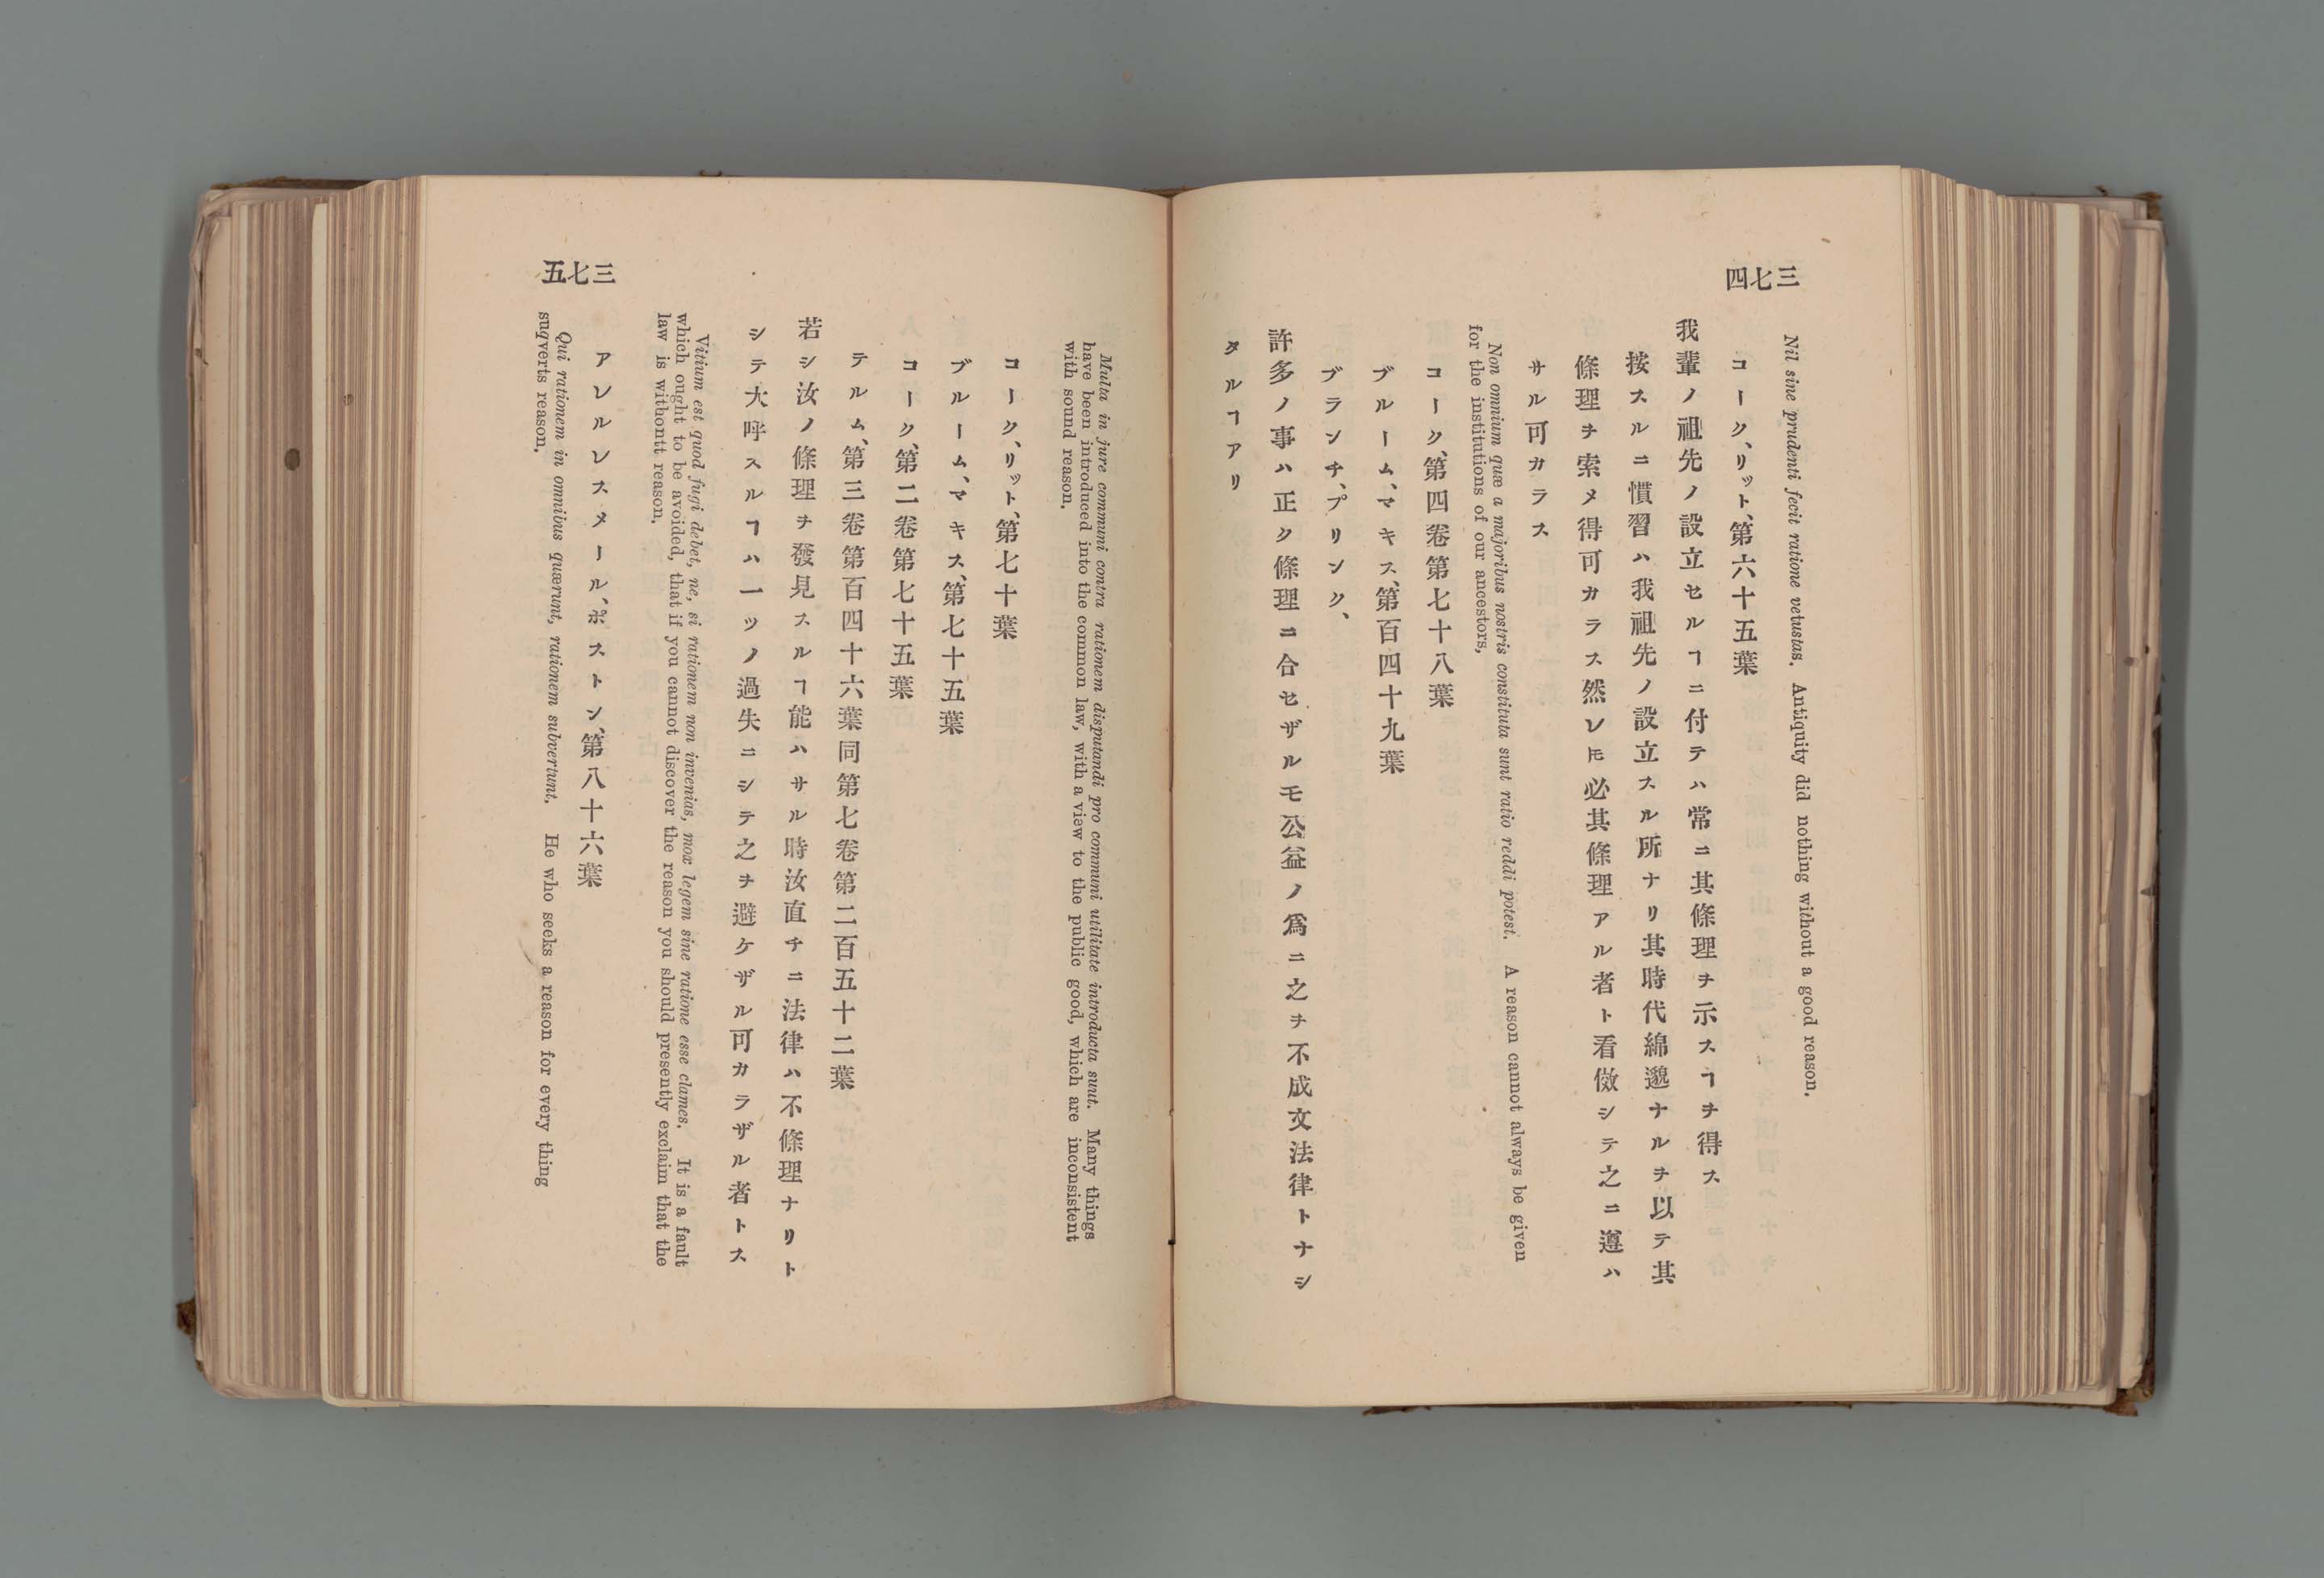 三七四
Nil sine prudenti fecit ratione vetustas. Antiquity did nothing without a good reason.
コーク、リット、第六十五葉
我輩ノ祖先ノ設立セルヿニ付テハ常ニ其條理ヲ示スヿヲ得ス
按スルニ慣習ハ我祖先ノ設立スル所ナリ其時代綿邈ナルヲ以テ其
條理ヲ索メ得可カラス然レ𪜈必其條理アル者ト看傚シテ之ニ遵ハ
サル可カラス
Non omnium quæ a majoribus nostris constituta sunt ratio reddi potest. A reason cannot always be given
for the institutions of our ancestors,
コーク、第四卷第七十八葉
ブルーム、マキス、第百四十九葉
ブランチ、プリンク、
許多ノ事ハ正ク條理ニ合セザルモ公益ノ爲ニ之ヲ不成文法律トナシ
タルヿアリ
Multa in jure communi contra rationem disputandi pro communi utilitate introducta sunt. Many things
have been introduced into the common law, with a view to the public good, which are inconsistent
with sound reason,
コーク、リット、第七十葉
ブルーム、マキス、第七十五葉
コーク、第二卷第七十五葉
テルム、第三卷第百四十六葉同第七卷第二百五十二葉
若シ汝ノ條理ヲ發見スルヿ能ハサル時汝直チニ法律ハ不條理ナリト
シテ大呼スルヿハ一ツノ過失ニシテ之ヲ避ケザル可カラザル者トス
Vitium est quod fugi debet, ne, si rationem non invenias, mox legem sine ratione esse clames. It is a fault
which ought to be avoided, that if you cannot discover the reason you should presently exclaim that the
law is withontt reason,
アレルレスメール、ポストン、第八十六葉
Qui rationem in omnibus quærunt, rationem subvertunt, He who seeks a reason for every thing
suqverts reason,
三七五